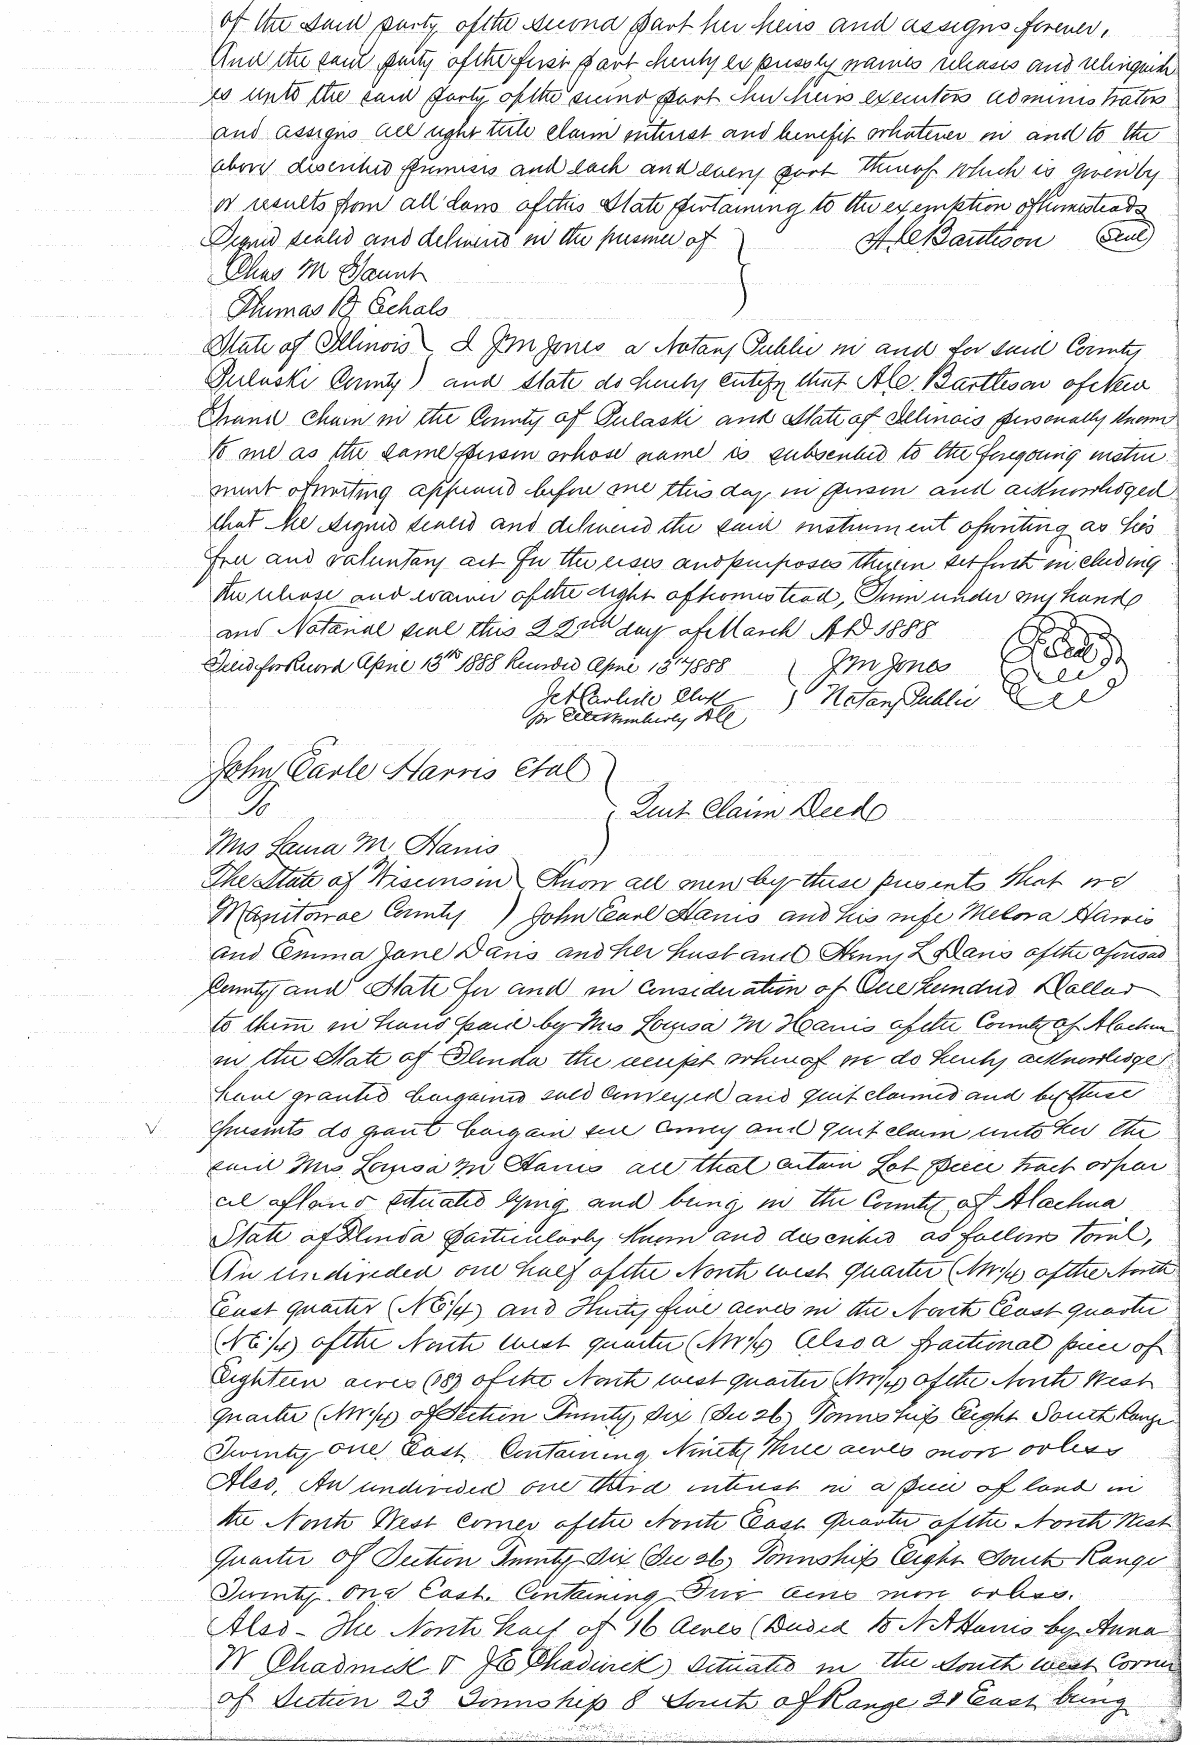 of the said party of the second part her heirs and assigns forever,
And the said party of the first part hereby expressly waives releases and relinquish
es unto the said party of the second part her heirs executors administrators
and assigns all right title claim interest and benefit whatever in and to the
above described premises and each and every part thereof which is given by
or results from all laws of this State pertaining to the exemption of homesteads
Signed sealed and delivered in the presence of A C Bartleson (Seal)
Chas M Gaunt
Thomas B Echols
State of Illinois I J M Jones a Notary Public in and for said County
Pulaski County and State do hereby certify that A C. Bartleson of New
Grand Chain in the County of Pulaski and State of Illinois personally known
to me as the same person whose name is subscribed to the foregoing instru
ment of writing appeared before me this day in person and acknowledged
that he signed sealed and delivered the said instrument of writing as his
free and voluntary act for the uses and purposes therein set forth including
the release and waiver of the right of homestead, Given under my hand
and Notarial seal this 22nd day of March A D 1888
Filed for Record April 13th 1888 Recorded April 13th 1888 J M Jones (Seal)
J A Carlisle Clk Notary Public
pr Wimberly D C
John Earle Harris et al
To Quit Claim Deed
Mrs Laura M Harris
The State of Wisconsin Know all men by these presents that we
Manitowac County John Earl Harris and his wife Melora Harris
and Emma Jane Davis and her husband Henry L Davis of the aforesaid
County and State for and in consideration of One hundred Dollars
to them in hand paid by Mrs Louisa M Harris of the County of Alachua
in the State of Florida the receipt whereof we do hereby acknowledge
have granted bargained sold conveyed and quit claimed and by these
presents do grant bargain sell convey and quit claim unto her the
said Mrs Louisa M Harris all that certain Lot piece tract or par
cel of land situated lying and being in the County of Alachua
State of Florida particularly known and described as follows towit,
An undivided one half of the North west quarter (NW 1/4) of the North
East quarter (NE 1/4) and Thirty five acres in the North East quarter
(NE 1/4) of the North west quarter (NW 1/4) Also a fractional piece of
Eighteen acres (18) of the North west quarter (NW 1/4) of the North West
quarter (NW 1/4) of Section Twenty Six (Sec 26) Township Eight South Range
Twenty one East Containing Ninety three acres more or less
Also, An undivided one third interest in a piece of land in
the North West corner of the North East Quarter of the North West
Quarter of Section Twenty Six (Sec 26) Township Eight South Range
Twenty one East. Containing Five acres more or less.
Also - The North half of 16 Acres (Deeded to N A Harris by Anna
W Chadwick & J E Chadwick) situated in the South west Corner
of Section 23 Township 8 South of Range 21 East being